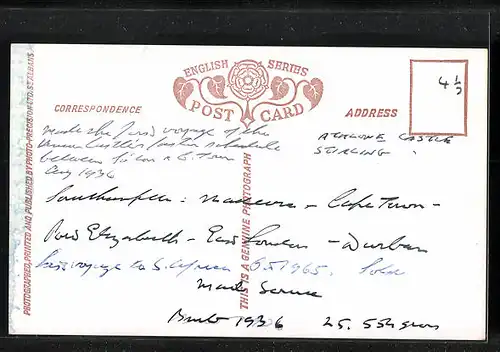 ENGLISH SERIES
POST CARD
CORRESPONDENCE
ADDRESS
4 1/2
made the first voyage of the
Union Castle's faster schedule
between S'ton & C. Town
Aug 1936
ATHLONE CASTLE
STIRLING
Southampton - Madeira - Cape Town -
Port Elizabeth - East London - Durban
Last voyage to S. Africa 1965. Sold
Built 1936 25.554 gross
PHOTOGRAPHED, PRINTED AND PUBLISHED BY PHOTO-PRECISION LTD. ST. ALBANS
THIS IS A GENUINE PHOTOGRAPH